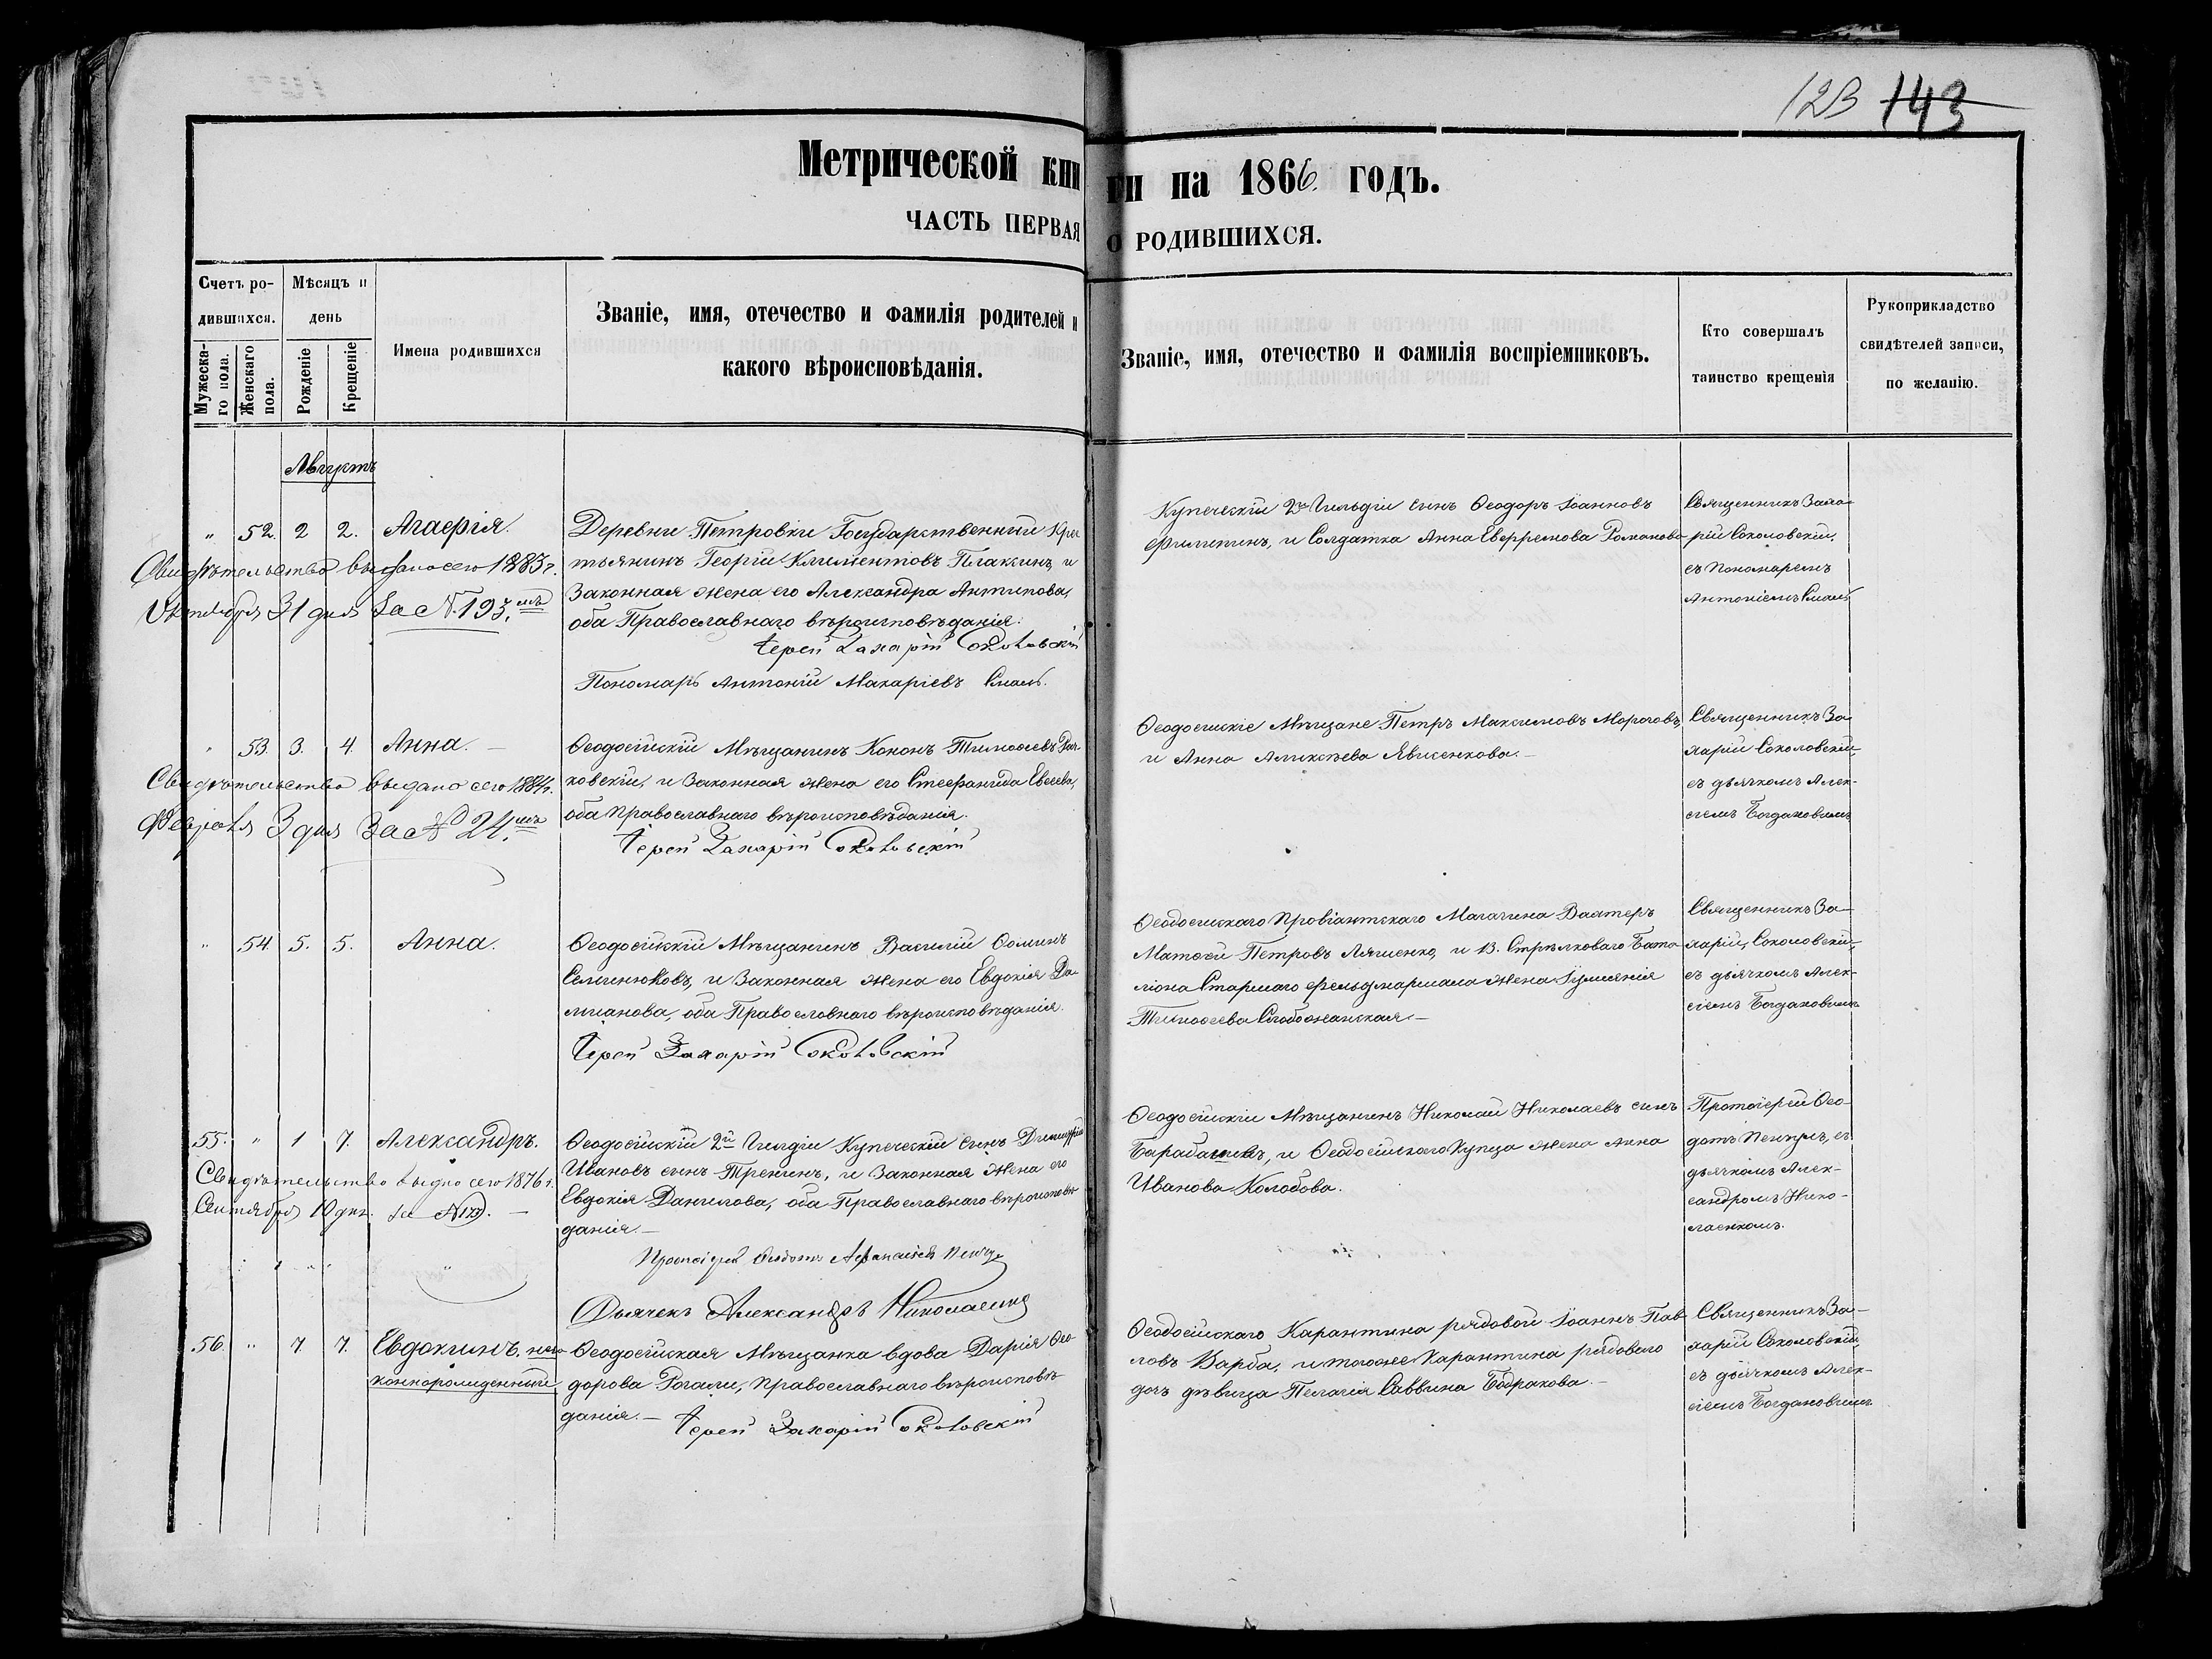 123 143
Метрической кни
ги на 1866 годъ.
ЧАСТЬ ПЕРВАЯ
О РОДИВШИХСЯ.
Счетъ ро-
дившихся.
Мужеска-
го пола.
Женскаго
пола.
Мѣсяцъ и
день
Рожденіе
Крещеніе
Имена родившихся
Званіе, имя, отечество и фамилія родителей и
какого вѣроисповѣданія.
Званіе, имя, отечество и фамилія воспріемниковъ.
Кто совершалъ
таинство крещенія
Рукоприкладство
свидѣтелей записи,
по желанію.
Августъ
" 52. 2 2. Агафія.
Свидѣтельство выдано сего 1883 г.
Октября 31 дня за № 193.мъ
Деревни Петровки Государственный Крес
тьянинъ Георгій Климентовъ Плаксинъ, и
Законная жена его Александра Антипова,
оба Православнаго вѣроисповѣданія.
Іерей Захарій Соколовскій
Пономарь Антоній Макаріевъ
Купеческій 2й Гильдіи сынъ Ѳеодоръ Іоанновъ
Филипинъ, и Солдатка Анна Евфремова Романова
Священникъ Заха-
рій Соколовскій,
съ Пономаремъ
Антоніемъ
" 53. 3. 4. Анна. —
Свидѣтельство выдано сего 1884 г.
Февраля 3 дня за № 24.мъ
Ѳеодосійскій Мѣщанинъ Кононъ Тимоѳеевъ
ковскій, и Законная жена его Стефанида Евсеева,
оба Православнаго вѣроисповѣданія.
Іерей Захарій Соколовскій
Ѳеодосійскіе Мѣщане Петръ Максимовъ Морозовъ,
и Анна Алексѣева Явисенкова. —
Священникъ За
харій Соколовскій,
съ дьячкомъ Алек-
сіемъ Богдановымъ
" 54. 5. 5. Анна.
Ѳеодосійскій Мѣщанинъ Василій Ѳоминъ
Селинюковъ, и Законная жена его Евдокія Да-
міанова, оба Православнаго вѣроисповѣданія.
Іерей Захарій Соколовскій
Ѳеодосійскаго Провіантскаго Магазина Вахтеръ
Матѳей Петровъ Ляшенко, и 13. Стрѣлковаго Бата
ліона Старшаго фельдшара жена Іуліанія
Тимоѳеева Слобожанская. —
Священникъ За-
харій Соколовскій,
съ дьячкомъ Алек-
сіемъ Богдановымъ
55. " 1 7. Александръ.
Свидѣтельство выдано сего 1876 г.
Сентября 10 дня. за №
Ѳеодосійскій 2й Гильдіи Купеческій сынъ Димитрій
Ивановъ сынъ Тренинъ, и Законная жена его
Евдокія Данилова, оба Православнаго вѣроисповѣ
данія. —
Протоіерей Ѳеодотъ Афанасіевъ
Дьячекъ Александръ Николаенко
Ѳеодосійскій Мѣщанинъ Николай Николаевъ сынъ
Барабашевъ, и Ѳеодосійскаго Купца жена Анна
Иванова Колобова.
Протоіерей Ѳео-
дотъ съ
дьячкомъ Алек-
сандромъ Нико-
лаенкомъ.
56. " 7 7. Евдокимъ, неза-
коннорожденный
Ѳеодосійская Мѣщанка вдова Дарія Ѳео
дорова Рогали, Православнаго вѣроисповѣ
данія. — Іерей Захарій Соколовскій
Ѳеодосійскаго Карантина рядовой Іоаннъ Пав
ловъ Варба, и тогоже Карантина рядоваго
дочь дѣвица Пелагія Саввина Бодракова. —
Священникъ За-
харій Соколовскій,
съ дьячкомъ Алек-
сіемъ Богдановымъ